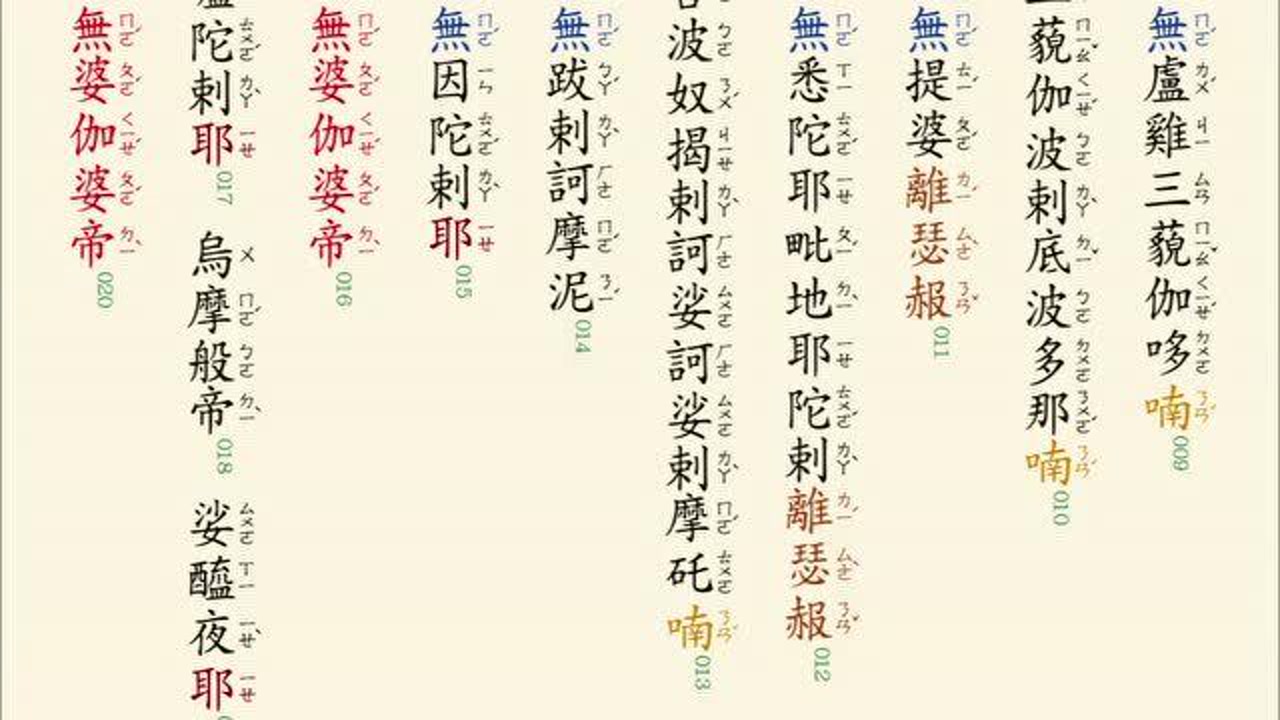 無盧雞三藐伽哆喃 009
藐伽波剌底波多那喃 010
無提婆離瑟赧 011
無悉陀耶毗地耶陀剌離瑟赧 012
波奴揭剌訶娑訶娑剌摩矺喃 013
無跋剌訶摩泥 014
無因陀剌耶 015
無婆伽婆帝 016
陀剌耶 017 烏摩般帝 018 娑醯夜耶
無婆伽婆帝 020